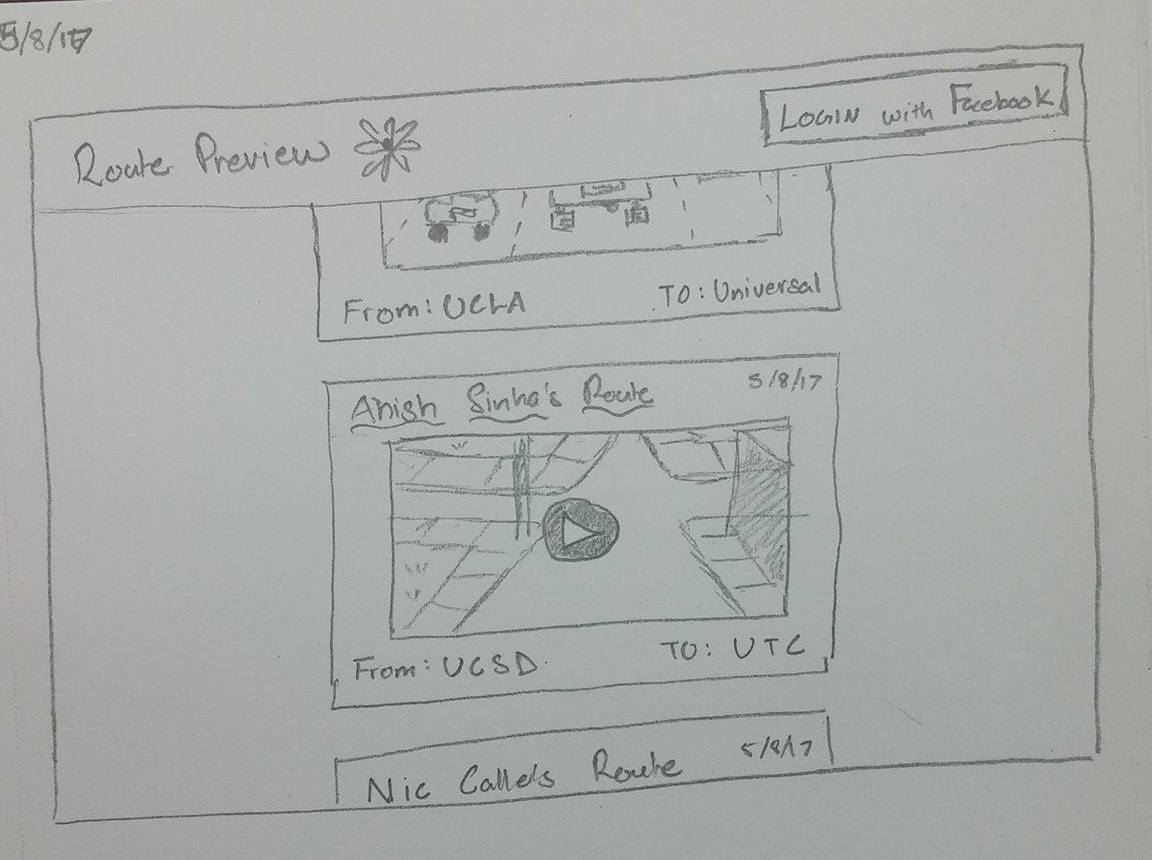 5/8/17
Route Preview
LOGIN with Facebook
From: UCLA
TO: Universal
Anish Sinha's Route
5/8/17
From: UCSD
TO: UTC
Nic Calle's Route
5/8/17